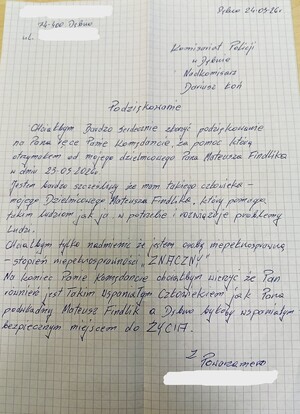 Dębno 24.05.24r.
74-400 Dębno
ul.
Komisariat Policji
w Dębnie
Nadkomisarz
Dariusz Łoń
Podziękowanie
Chciałbym Bardzo serdecznie złożyć podziękowanie
na Pana ręce Panie Komędancie, za pomoc którą
otrzymałem od mojego dzielnicowego Pana Mateusza Findlika
w dniu 23-05-2024r.
Jestem bardzo szczęśliwy że mam takiego człowieka -
mojego Dzielnicowego Mateusza Findlika, który pomaga
takim ludziom jak ja, w potrzebie i rozwiązuje problemy
Ludzi.
Chciałbym tylko nadmienić że jestem osobą niepełnosprawną
- stopień niepełnosprawności "ZNACZNY"
Na koniec Panie Komędancie chciałbym wierzyć że Pan
również jest Takim Wspaniałym Człowiekiem jak Pana
podwładny Mateusz Findlik a Dębno byłoby wspaniałym
bezpiecznym miejscem do ŻYCIA.
Z
Poważaniem